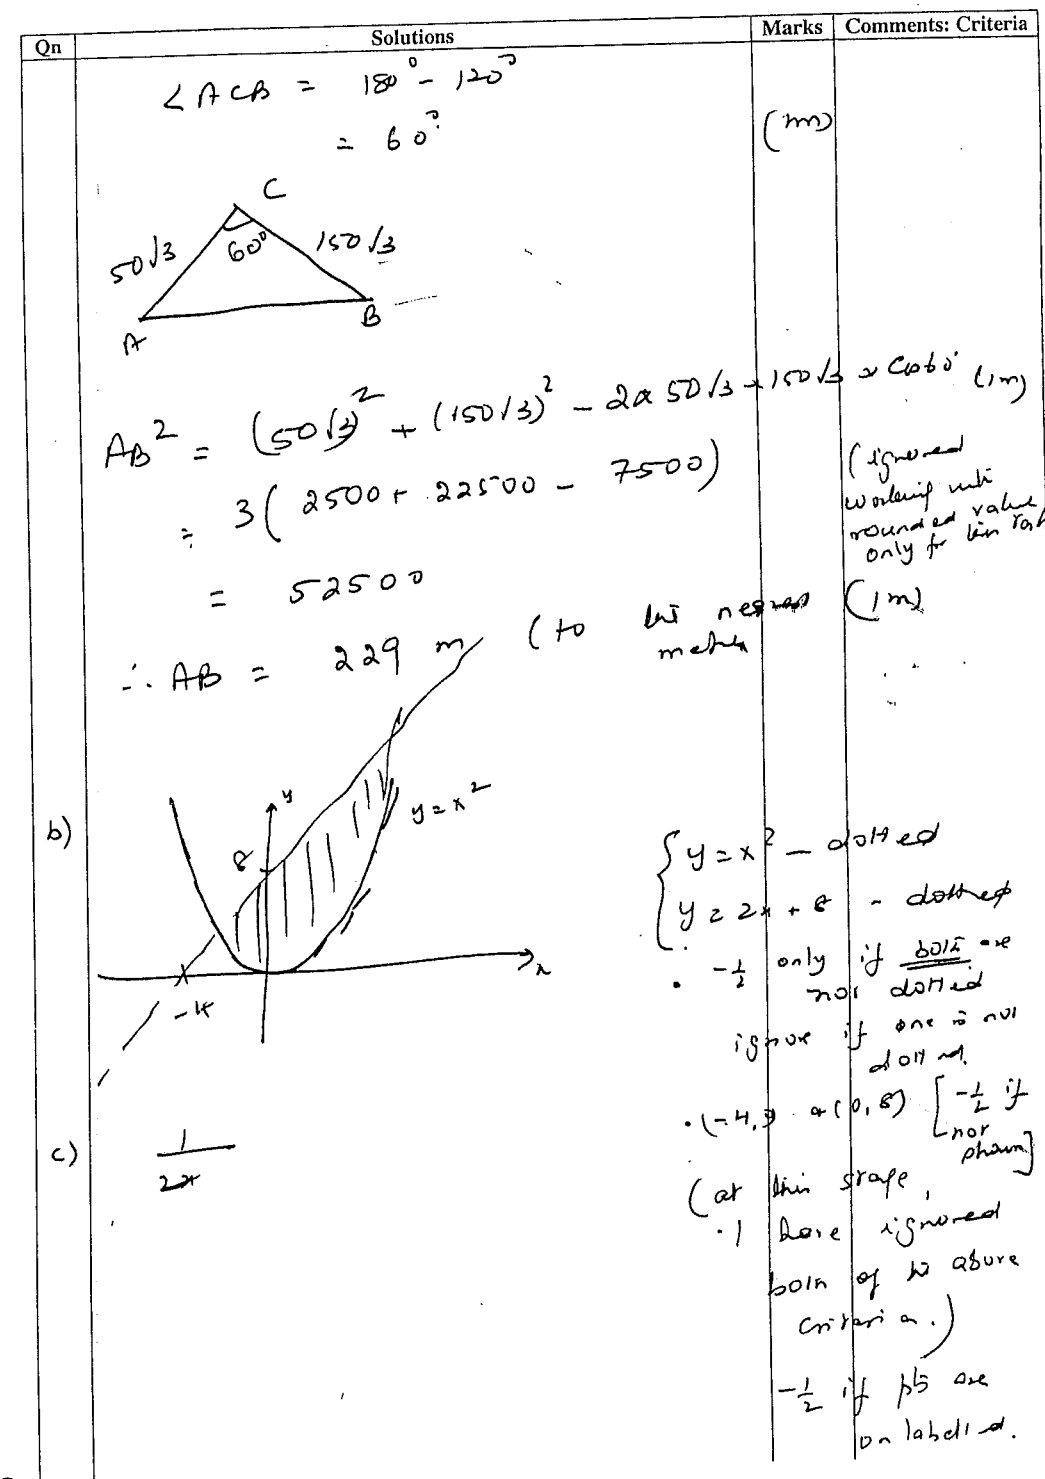 Qn Solutions Marks Comments: Criteria
∠ACB = 180° - 120°
= 60°
(1m)
C
50√3 60° 150√3
A B
AB² = (50√3)² + (150√3)² - 2 x 50√3 x 150√3 x Cos60° (1m)
= 3( 2500 + 22500 - 7500)
(ignored
working with
rounded value
only for this
= 52500
∴ AB = 229 m (to the nearest (1m)
metre
b)
y
8
y = x²
x
-4
{ y = x² - dotted
y = 2x + 8 - dotted
• -½ only if both are
not dotted
ignore if one is not
dotted.
• (-4, & (0, 8) [-½ if
not
shown]
(at this stage,
I have ignored
both of the above
criteria.)
-½ if pts are
unlabelled.
c) 1
2x